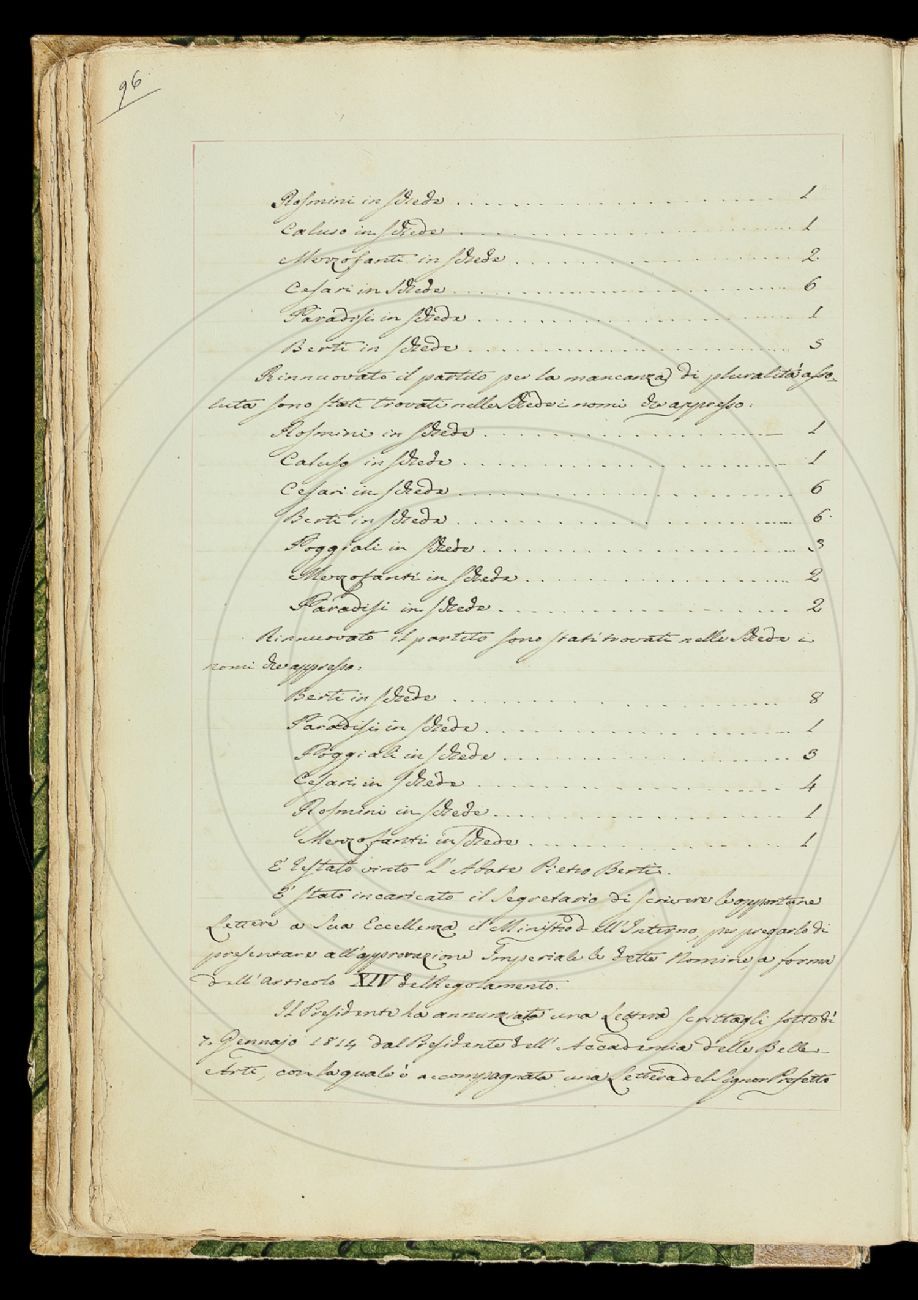 96
Rosmini in schede . . . . . . . . . . 1
Caluso in schede . . . . . . . . . . 1
Mezzofanti in schede . . . . . . . . . . 2
Cesari in schede . . . . . . . . . . 6
Paradisi in schede . . . . . . . . . . 1
Berti in schede . . . . . . . . . . 5
Rinnuovato il partito per la mancanza di pluralità asso-
luta sono stati trovati nelle schede i nomi che appresso.
Rosmini in schede . . . . . . . . . . 1
Caluso in schede . . . . . . . . . . 1
Cesari in schede . . . . . . . . . . 6
Berti in schede . . . . . . . . . . 6
Poggiali in schede . . . . . . . . . . 3
Mezzofanti in schede . . . . . . . . . . 2
Paradisi in schede . . . . . . . . . . 2
Rinnuovato il partito sono stati trovati nelle schede i
nomi che appresso.
Berti in schede . . . . . . . . . . 8
Paradisi in schede . . . . . . . . . . 1
Poggiali in schede . . . . . . . . . . 3
Cesari in schede . . . . . . . . . . 4
Rosmini in schede . . . . . . . . . . 1
Mezzofanti in schede . . . . . . . . . . 1
E' restato vinto l'Abate Pietro Berti.
E' stato incaricato il Segretario di scrivere le opportune
Lettere a Sua Eccellenza il Ministro dell'Interno, per pregarlo di
presentare all'approvazione Imperiale le dette Nomine, a forma
dell'Articolo XIV del Regolamento.
Il Presidente ha annunziato una Lettera scrittagli sotto dì
7. Gennajo 1814 dal Presidente dell'Accademia delle Belle
Arti, con la quale è accompagnata una Lettera del Signor Prefetto